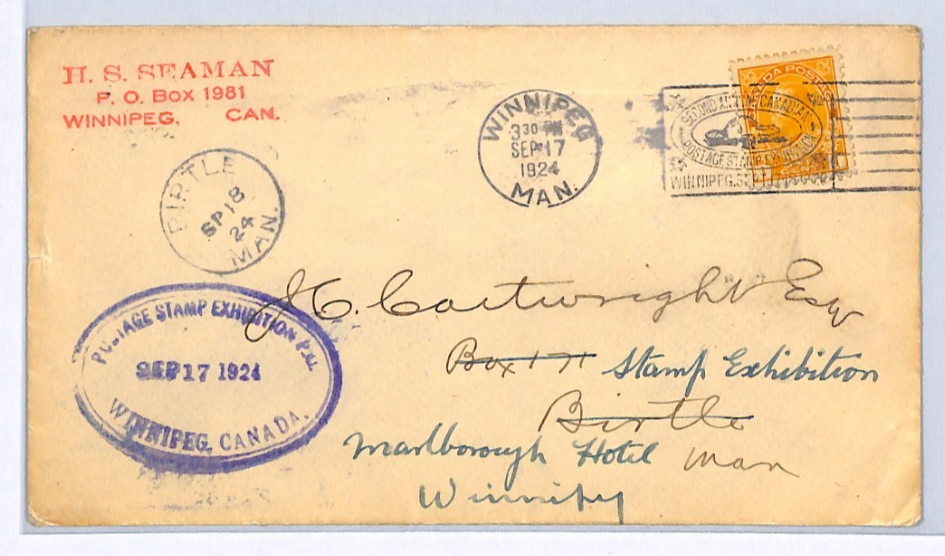 H. S. SEAMAN
P. O. Box 1981
WINNIPEG, CAN.
WINNIPEG
3 30 PM
SEP 17
1924
MAN.
SECOND CANADIAN
POSTAGE STAMP EXHIBITION
WINNIPEG, SEPT
CANADA POSTAGE
BIRTLE
SP 18
24
MAN.
POSTAGE STAMP EXHIBITION
SEP 17 1924
WINNIPEG, CANADA.
J C. Cartwright Esq
Box 171 Stamp Exhibition
Birtle
Marlborough Hotel Man
Winnipeg